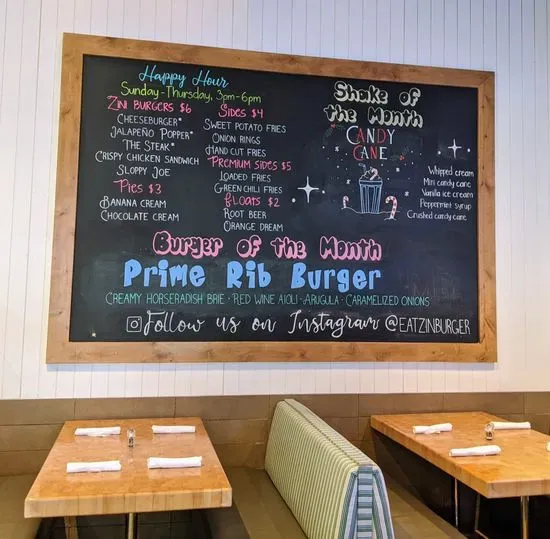 Happy Hour
Sunday-Thursday, 3pm-6pm
Zini Burgers $6
Cheeseburger*
Jalapeño Popper*
The Steak*
Crispy Chicken Sandwich
Sloppy Joe
Pies $3
Banana Cream
Chocolate Cream
Sides $4
Sweet Potato Fries
Onion Rings
Hand Cut Fries
Premium Sides $5
Loaded Fries
Green Chili Fries
Floats $2
Root Beer
Orange Dream
Shake of
the Month
Candy
Cane
Whipped cream
Mini candy cane
Vanilla ice cream
Peppermint syrup
Crushed candy cane
Burger of the Month
Prime Rib Burger
Creamy Horseradish Brie · Red Wine Aioli · Arugula · Caramelized Onions
Follow us on Instagram @EATZINBURGER